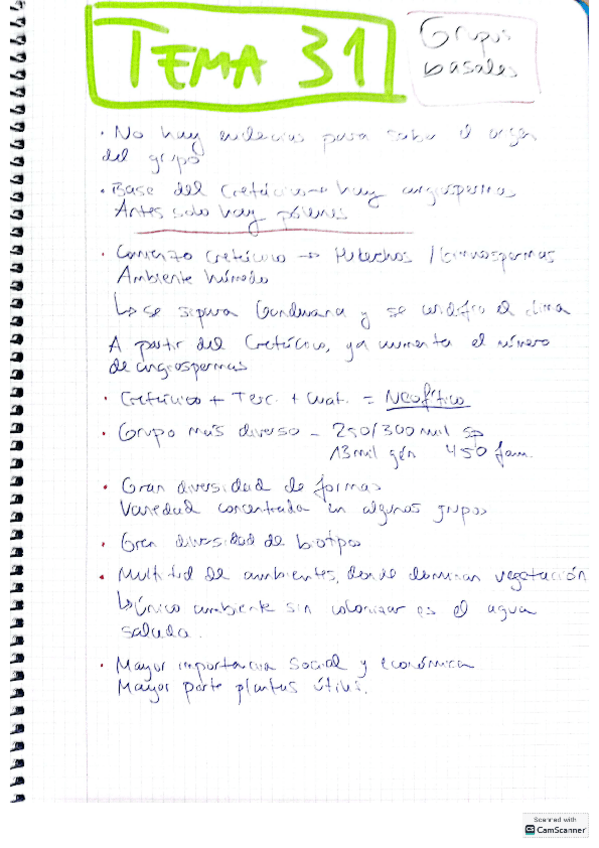 TEMA 31
Grupos
basales
· No hay evidencias para saber el origen
del grupo
· Base del Cretácico → hay angiospermas
Antes solo hay pólenes
· Comienzo Cretácico → Helechos / Gimnospermas
Ambiente húmedo
↳ se separa Gondwana y se el clima
A partir del Cretácico, ya aumenta el número
de angiospermas
· Cretácico + Terc. + Cuat. = Neofítico
· Grupo más diverso - 250/300 mil sp
13 mil gén 450 fam.
· Gran diversidad de formas
Variedad concentrada en algunos grupos
· Gran diversidad de biotipos
· Multitud de ambientes, donde dominan vegetación
↳ Único ambiente sin colonizar es el agua
salada.
· Mayor importancia social y económica
Mayor parte plantas útiles.
Scanned with
CamScanner